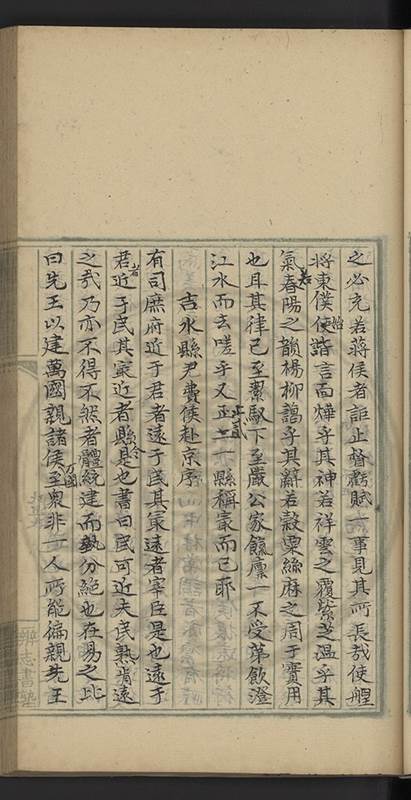 之必充若蔣侯者詎止督虧賦一事見其所長哉使艎
將東僕使㫺言而燁乎其神若祥雲之覆紫芝溫乎其
氣若春陽之韻楊柳謁乎其辭若穀粟絲麻之周于實用
也且其律已至絜馭下至嚴公家餼廩一不受第飲澄
江水而去嗟乎又正止貳一縣稱最而已耶
吉水縣尹費侯赴京序
有司庶府近于君者遠于民其最遠者宰臣是也遠于
君者近于民其最近者縣令是也書曰民可近夫民孰肯遠
之哉乃亦不得不然者體統建而勢分絕也在易之比
曰先王以建萬國親諸侯萬國至眾非一人所能徧親先王